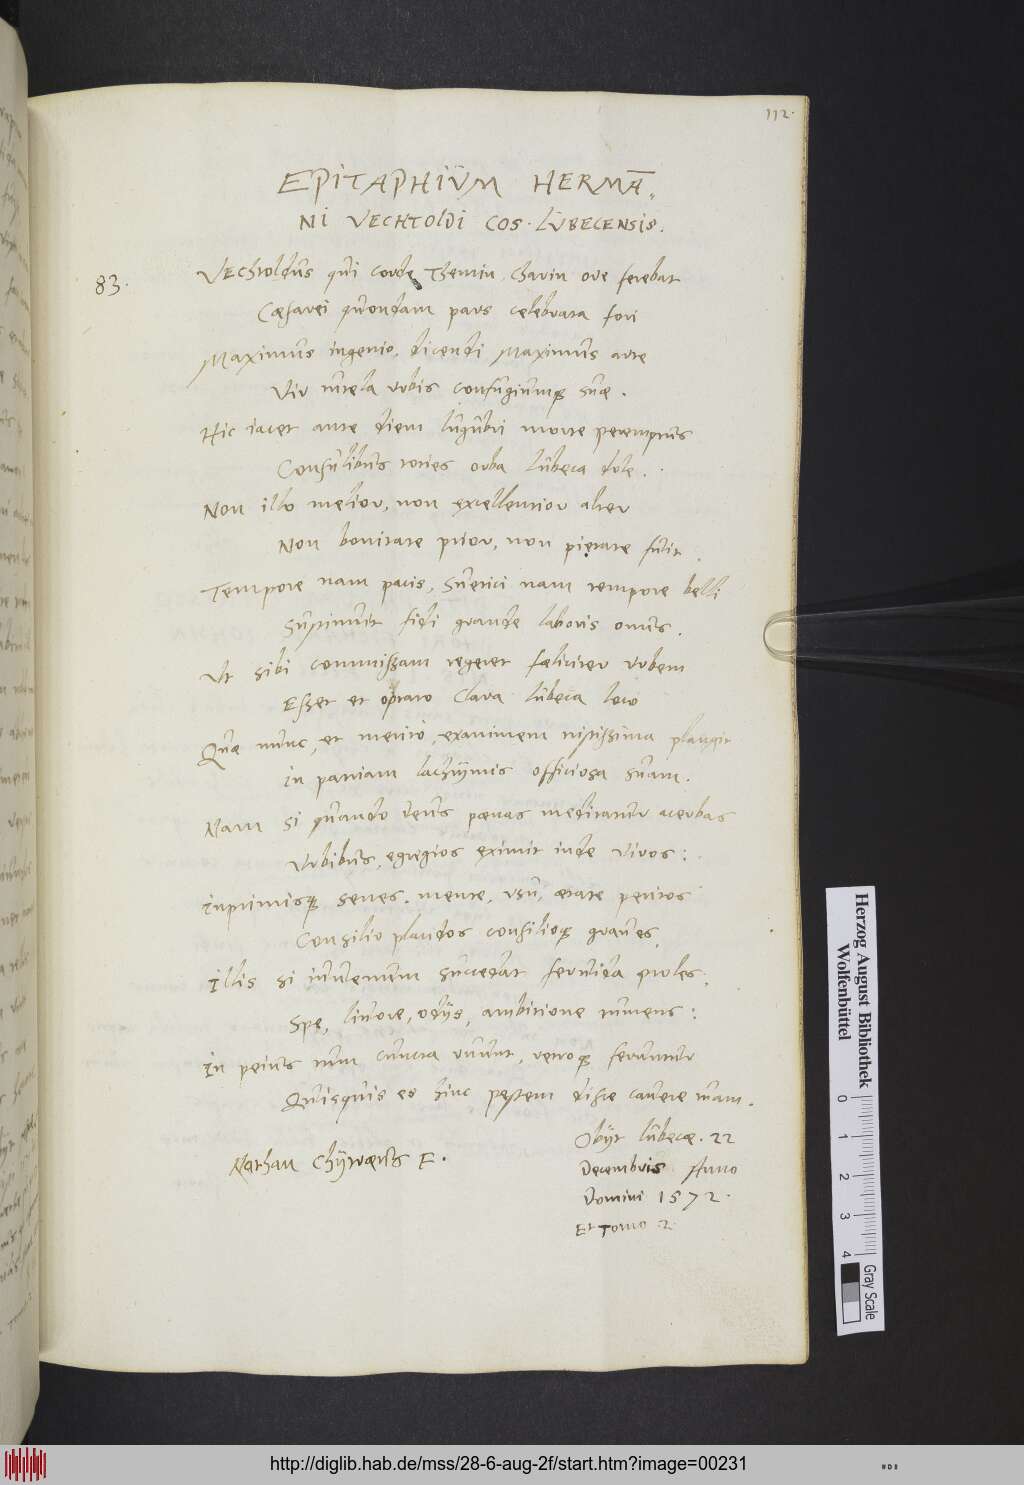 112.
EPITAPHIUM HERMĀ„
NI VECHTOLDI COS. LUBECENSIS.
83.
Vechtoldus qui corde Themin, Charin ore ferebat
Cæsarei quondam pars celebrata fori
Maximus ingenio, dicendi Maximus arte
Vir tutela urbis confugiumq; suæ.
Hic iacet ante diem lugubri morte peremptus
Consulibus toties orba Lubeca dole.
Non illo melior, non excellentior alter
Non bonitate prior, non pietate fuit.
Tempore nam pacis, Suetici nam tempore belli
Sustinuit fidi grande laboris onus.
Ut sibi commissam regeret fæliciter urbem
Esset et optato Clara Lubeca loco
Quæ nunc, et merito, exanimem tristissima plangit
in patriam lachrymis officiosa suam.
Nam si quando Deus pœnas meditatur acerbas
Urbibus, egregios eximit inde viros:
inprimisq; senes, mente, usu, ætate peritos
Consilio placidos consilioq; graues.
illis si iuuenum succedat feruida proles,
Spe, liuore, odijs, ambitione tumens:
in peius tum cuncta ruunt, retroq; feruntur
Quisquis es hinc pestem disce cauere tuam.
Nathan Chytræus F.
Obijt Lubecæ. 22
Decembris Anno
Domini 1572.
Et Tomo 2.
Herzog August Bibliothek
Wolfenbüttel
0 1 2 3 4
Gray Scale
http://diglib.hab.de/mss/28-6-aug-2f/start.htm?image=00231